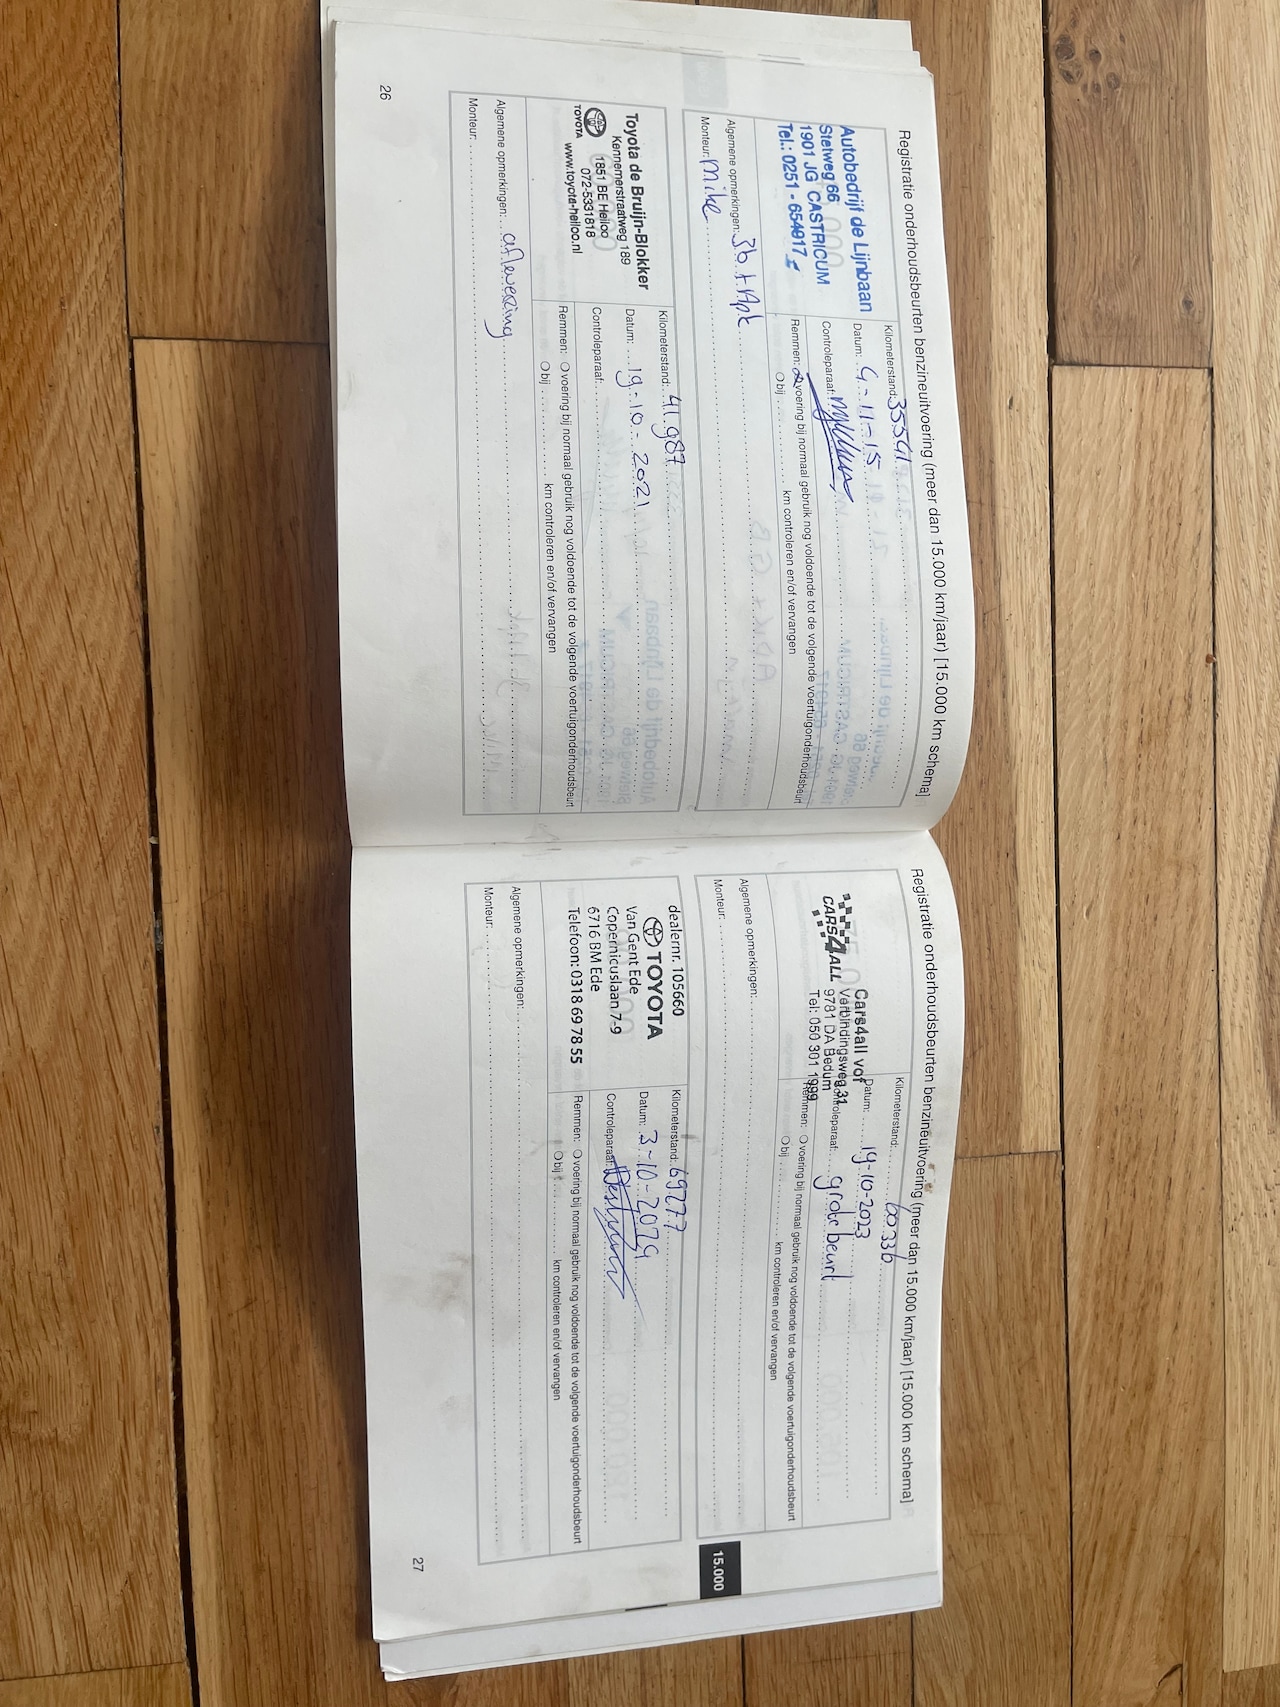 Registratie onderhoudsbeurten benzineuitvoering (meer dan 15.000 km/jaar) [15.000 km schema]
Autobedrijf de Lijnbaan
Stetweg 66
1901 JG CASTRICUM
Tel.: 0251 - 654917
Kilometerstand: 35541
Datum: 4-11-15
Controleparaaf:
Remmen: voering bij normaal gebruik nog voldoende tot de volgende voertuigonderhoudsbeurt
bij km controleren en/of vervangen
Algemene opmerkingen: 3b + Apk
Monteur: Mike
Toyota de Bruijn-Blokker
Kennemerstraatweg 189
1851 BE Heiloo
072-5331818
TOYOTA www.toyota-heiloo.nl
Kilometerstand: 41.987
Datum: 19-10-2021
Controleparaaf:
Remmen: voering bij normaal gebruik nog voldoende tot de volgende voertuigonderhoudsbeurt
bij km controleren en/of vervangen
Algemene opmerkingen: aflevering
Monteur:
26
Registratie onderhoudsbeurten benzineuitvoering (meer dan 15.000 km/jaar) [15.000 km schema]
CARS4ALL
Cars4all vof
Verbindingsweg 31
9781 DA Bedum
Tel: 050 301 1999
Kilometerstand: 60336
Datum: 19-10-2023
Controleparaaf: grote beurt
Remmen: voering bij normaal gebruik nog voldoende tot de volgende voertuigonderhoudsbeurt
bij km controleren en/of vervangen
Algemene opmerkingen:
Monteur:
15.000
dealernr. 105660
TOYOTA
Van Gent Ede
Copernicuslaan 7-9
6716 BM Ede
Telefoon: 0318 69 78 55
Kilometerstand: 69277
Datum: 3-10-2024
Controleparaaf:
Remmen: voering bij normaal gebruik nog voldoende tot de volgende voertuigonderhoudsbeurt
bij km controleren en/of vervangen
Algemene opmerkingen:
Monteur:
27